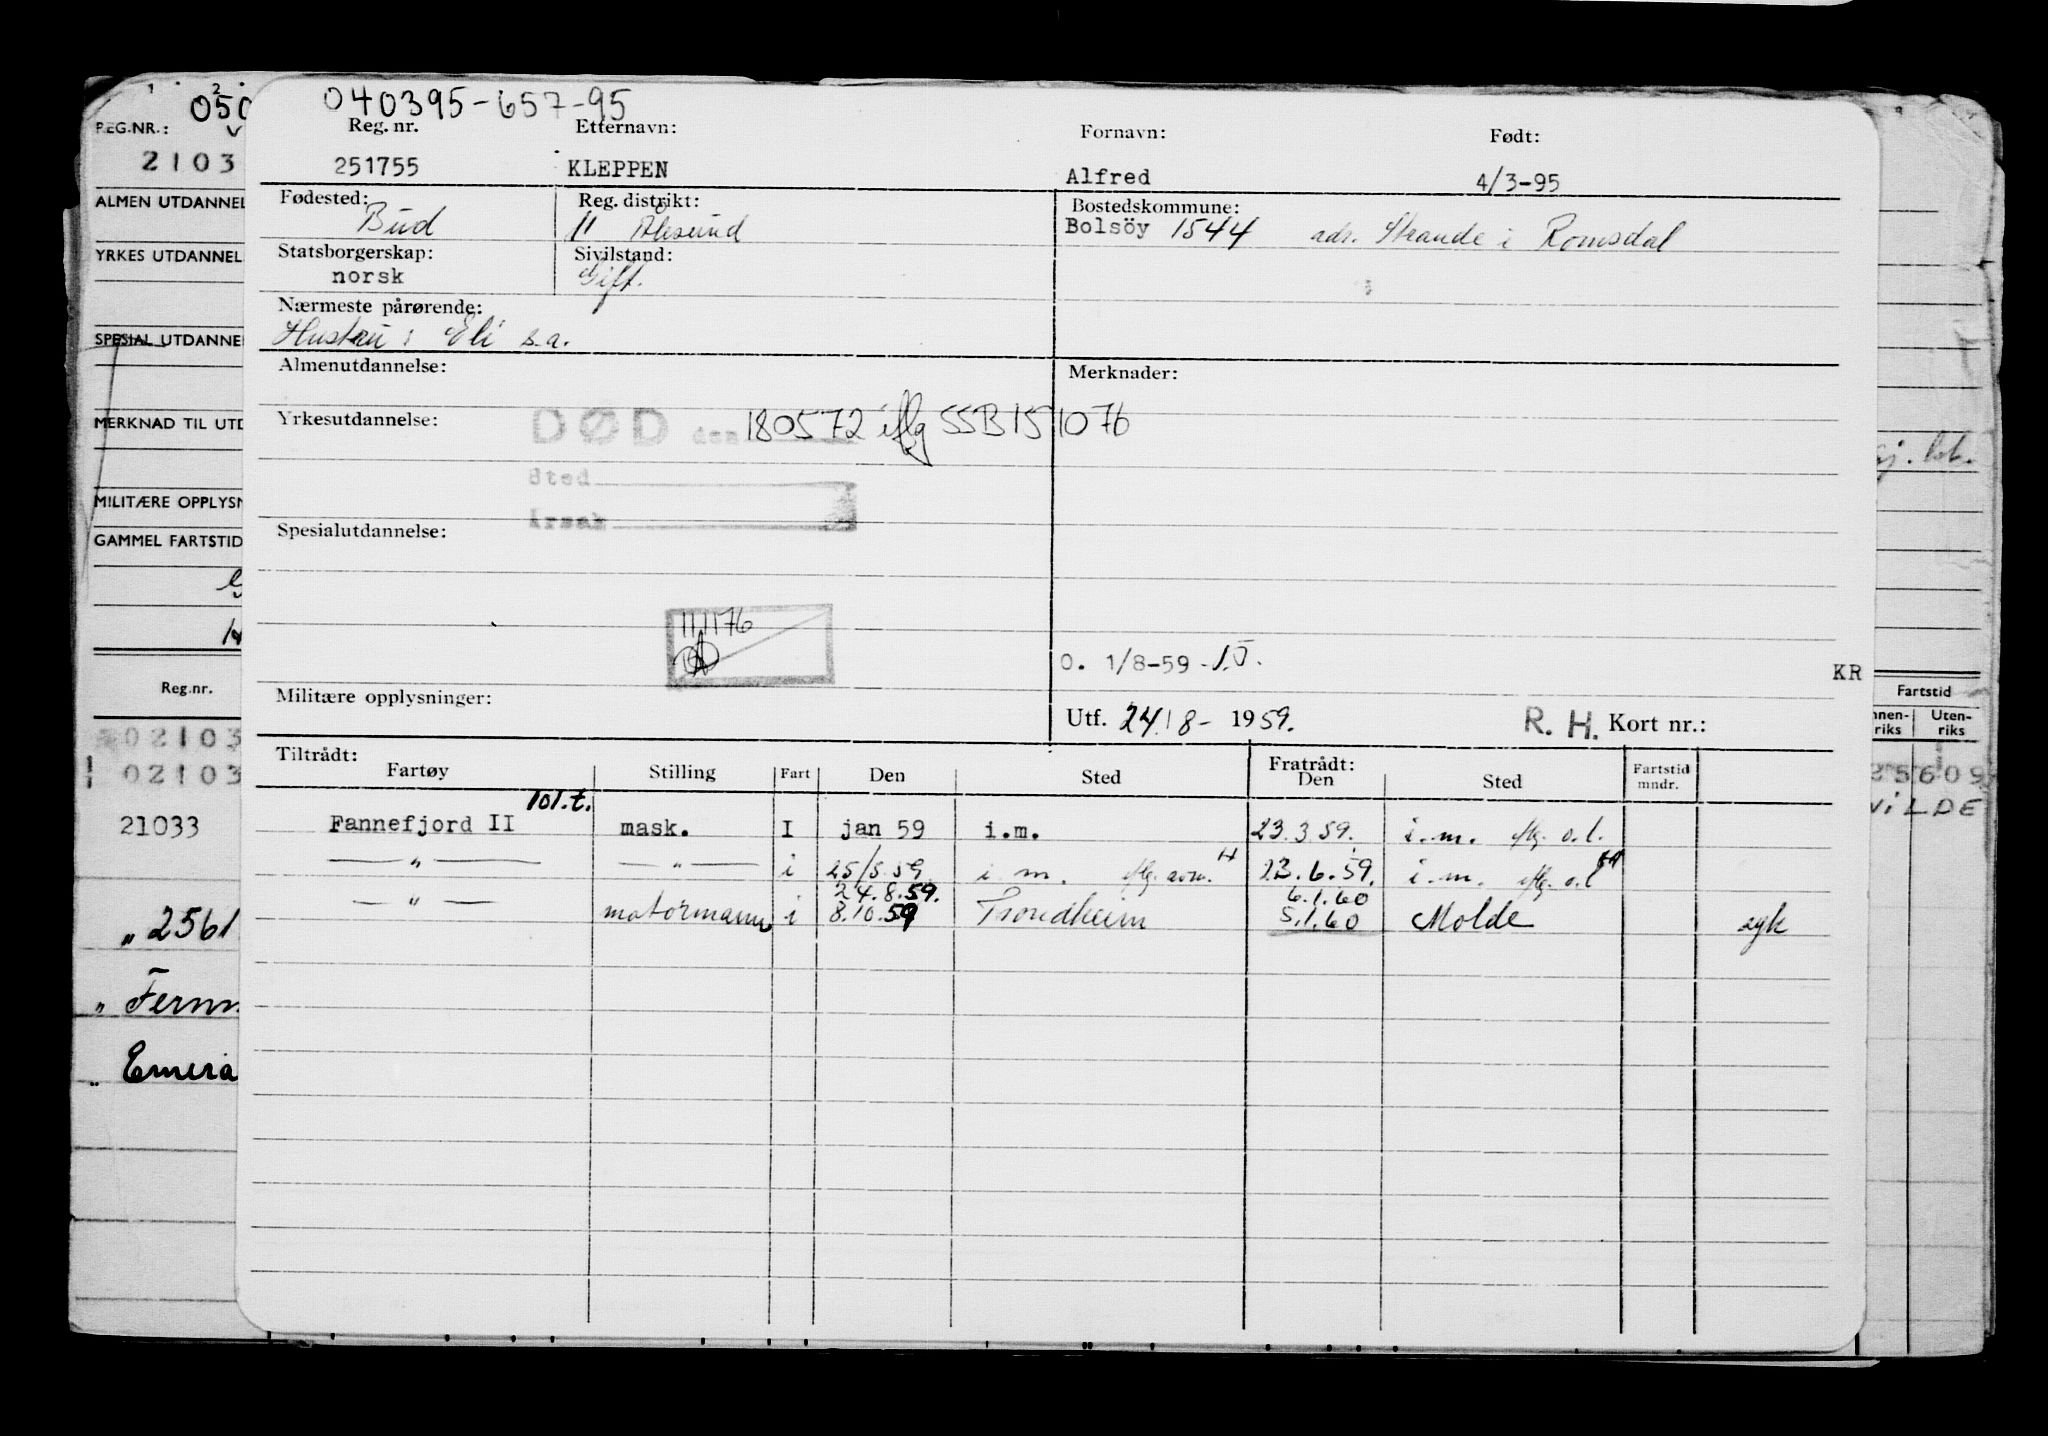 050
REG.NR.:
2103
ALMEN UTDANNEL
YRKES UTDANNEL
SPESIAL UTDANNE
MERKNAD TIL UTD
MILITÆRE OPPLYSN
GAMMEL FARTSTID
Reg.nr.
02103
02103
21033
„ 2561
„ Fernm
„ Emera
040395-657-95
Reg. nr. Etternavn: Fornavn: Født:
251755 KLEPPEN Alfred 4/3-95
Fødested: Reg. distrikt: Bostedskommune:
Bud 11 Ålesund Bolsöy 1544 adr. Strande i Romsdal
Statsborgerskap: Sivilstand:
norsk Gift.
Nærmeste pårørende:
Hustru: Eli s.a.
Almenutdannelse: Merknader:
Yrkesutdannelse: DØD den 180572 iflg SSB 151076
Sted
Årsak
Spesialutdannelse:
111176
O. 1/8-59 - I.J. KR
Militære opplysninger: Utf. 24/8- 1959. R. H. Kort nr.:
Tiltrådt: Fratrådt:
Fartøy Stilling Fart Den Sted Den Sted Fartstid mndr.
101.t.
Fannefjord II mask. I jan 59 i.m. 23.3.59. i.m. iflg. o.l.
— „ — — „ — i 25/5.59 i.m. iflg. 23.6.59. i.m. iflg. o.l
24.8.59. 6.1.60
— „ — motormann i 8.10.59 Trondheim 5.1.60 Molde syk
Fartstid
nnen-
riks
Uten-
riks
25609
VILDE